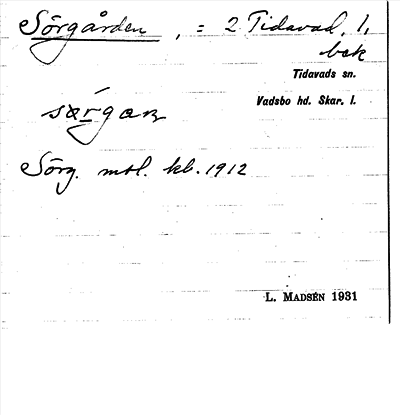 Sörgården , = 2 Tidavad, 1,
bek
Tidavads sn.
Vadsbo hd. Skar. l.
Sörg. mtl. kb. 1912
L. MADSÉN 1931